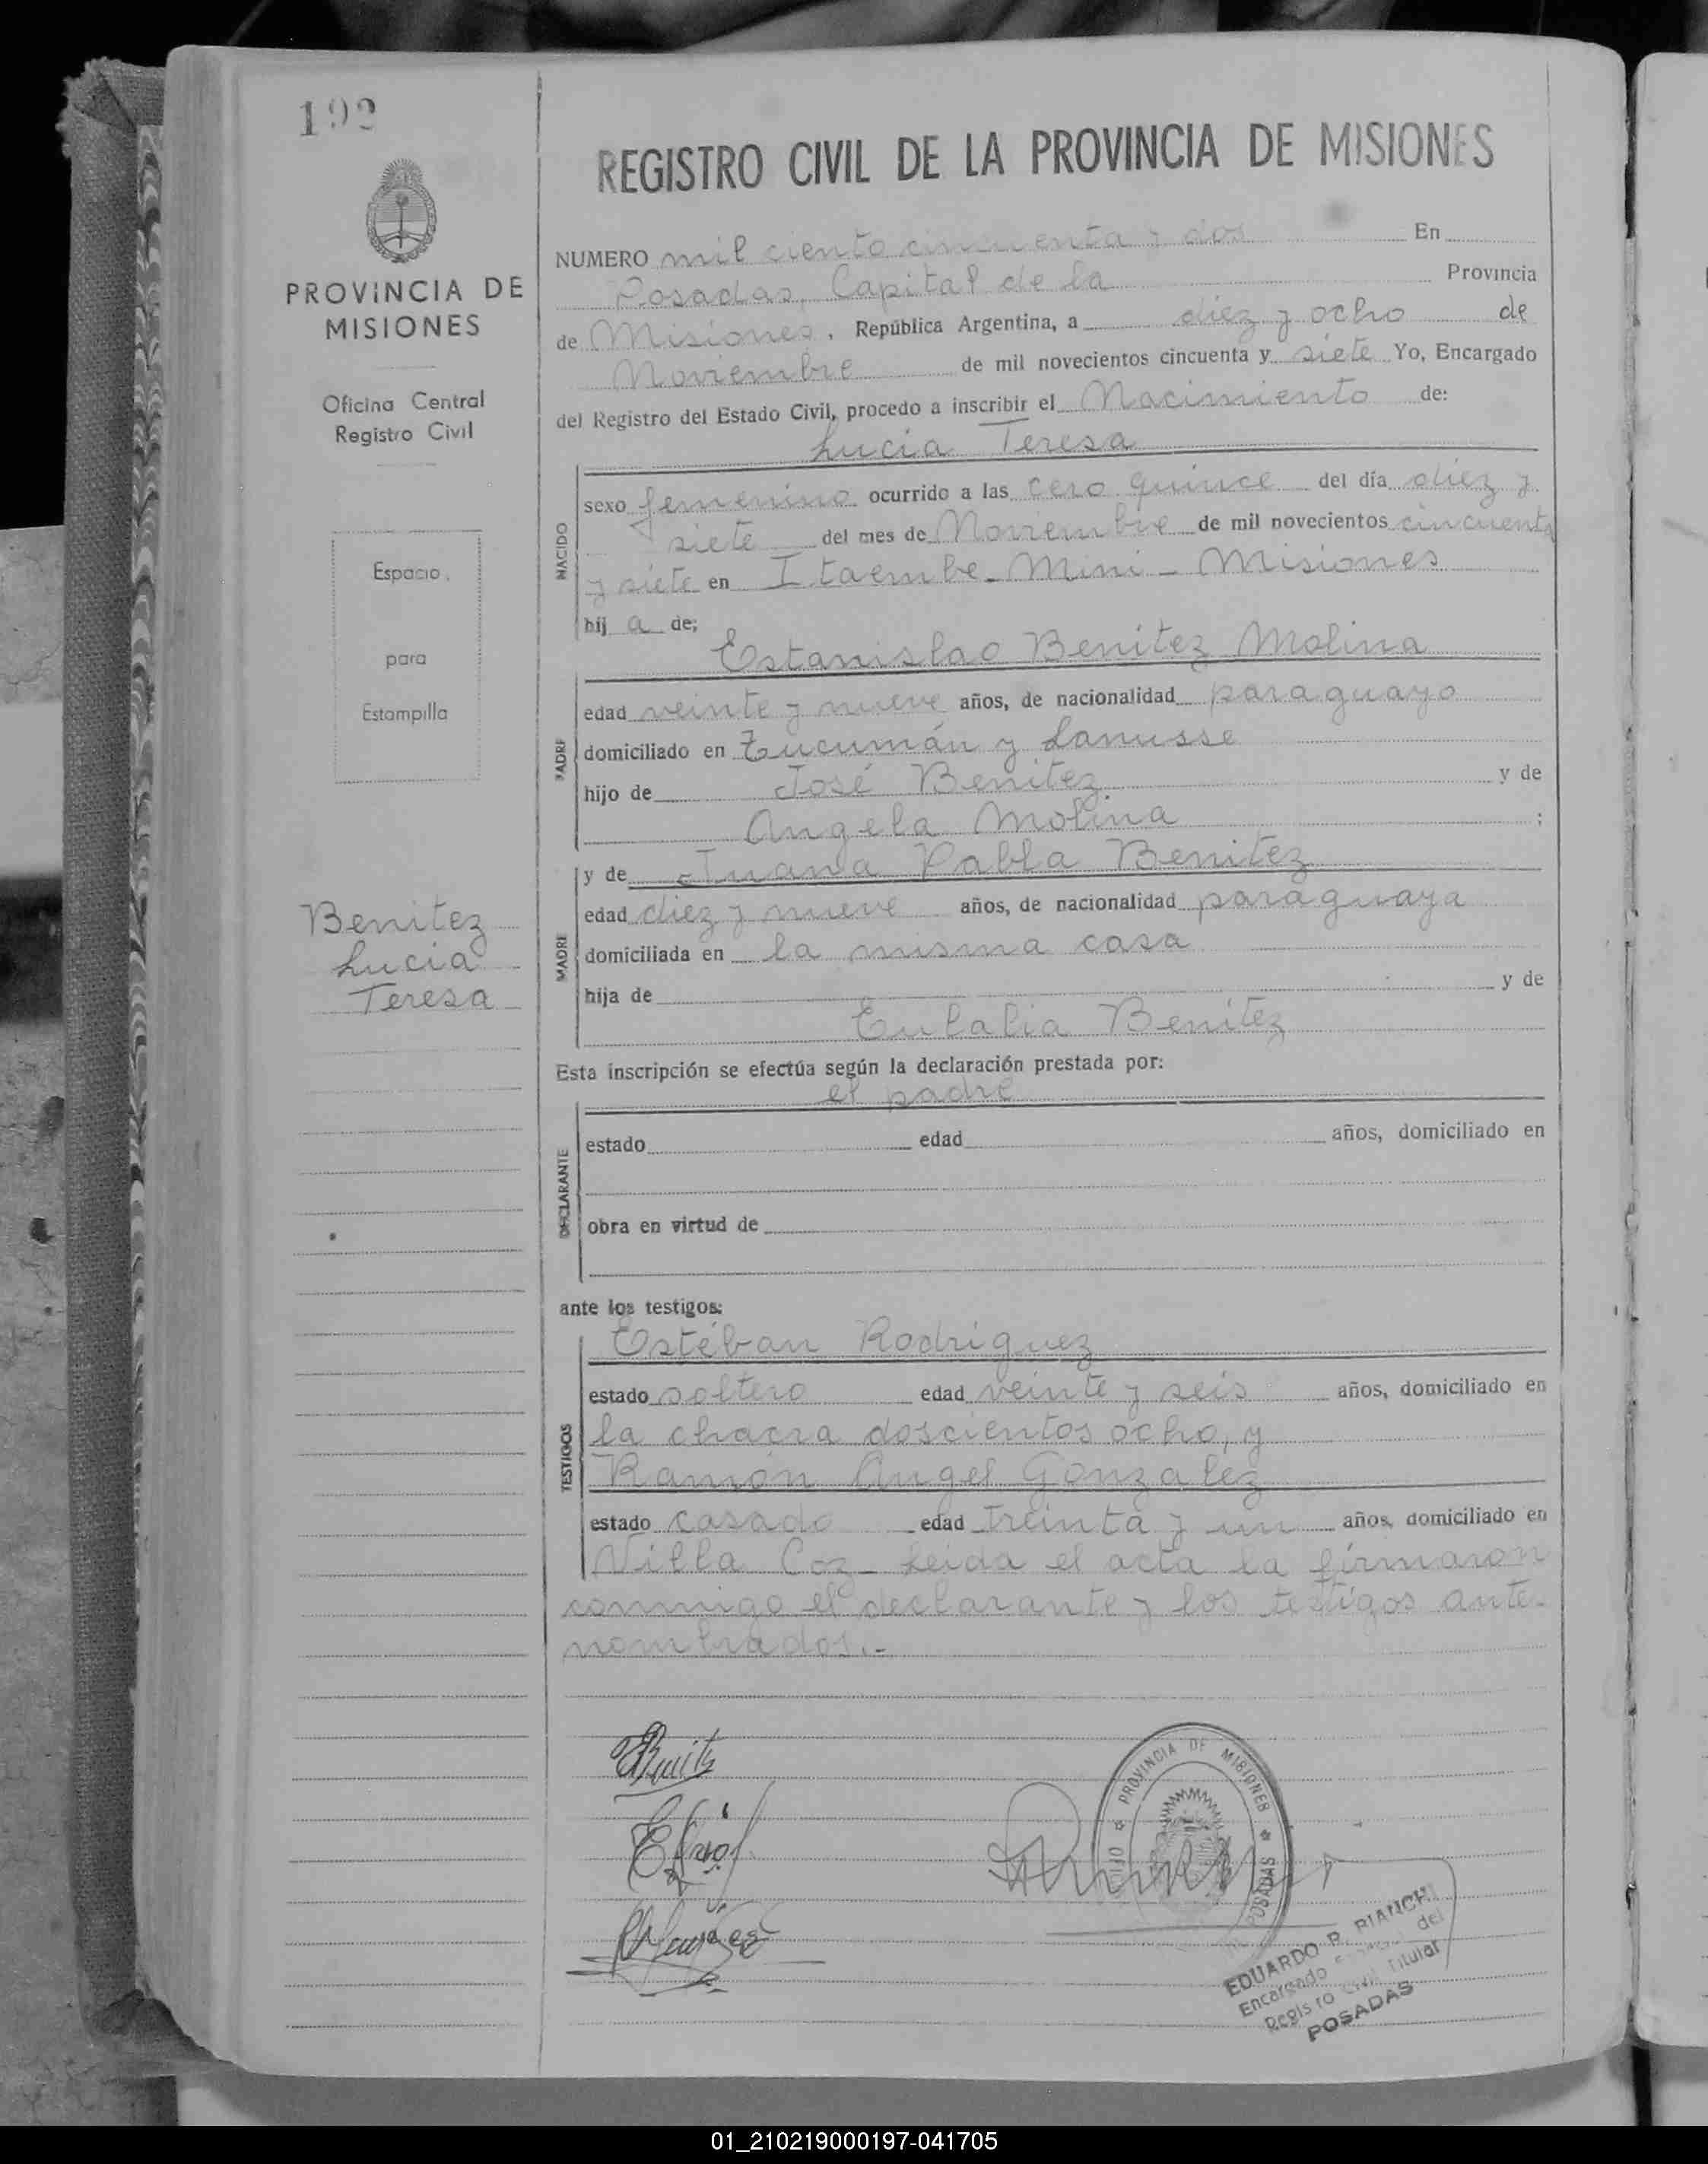 192
PROVINCIA DE
MISIONES
Oficina Central
Registro Civil
Espacio
para
Estampilla
Benitez
Lucia
Teresa
REGISTRO CIVIL DE LA PROVINCIA DE MISIONES
NUMERO mil ciento cincuenta y dos En
Posadas, Capital de la Provincia
de Misiones, República Argentina, a diez y ocho de
Noviembre de mil novecientos cincuenta y siete Yo, Encargado
del Registro del Estado Civil, procedo a inscribir el Nacimiento de:
Lucia Teresa
NACIDO
sexo femenino ocurrido a las cero quince del día diez y
siete del mes de Noviembre de mil novecientos cincuenta
y siete en Itaembe-Mini-Misiones
hij a de;
Estanislao Benitez Molina
PADRE
edad veinte y nueve años, de nacionalidad paraguayo
domiciliado en Tucumán y Lanusse
hijo de José Benitez y de
Angela Molina ;
y de Juana Pabla Benitez
MADRE
edad diez y nueve años, de nacionalidad paraguaya
domiciliada en la misma casa
hija de y de
Eulalia Benítez
Esta inscripción se efectúa según la declaración prestada por:
el padre
DECLARANTE
estado edad años, domiciliado en
obra en virtud de
ante los testigos:
Estéban Rodriguez
TESTIGOS
estado soltero edad veinte y seis años, domiciliado en
la chacra doscientos ocho, y
Ramón Angel Gonzalez
estado casado edad treinta y un años, domiciliado en
Villa Coz- Leida el acta la firmaron
conmigo el declarante y los testigos ante-
nombrados.-
PROVINCIA DE MISIONES
POSADAS
EDUARDO R. BIANCHI
Encargado del
Registro Civil Titular
POSADAS
01_210219000197-041705